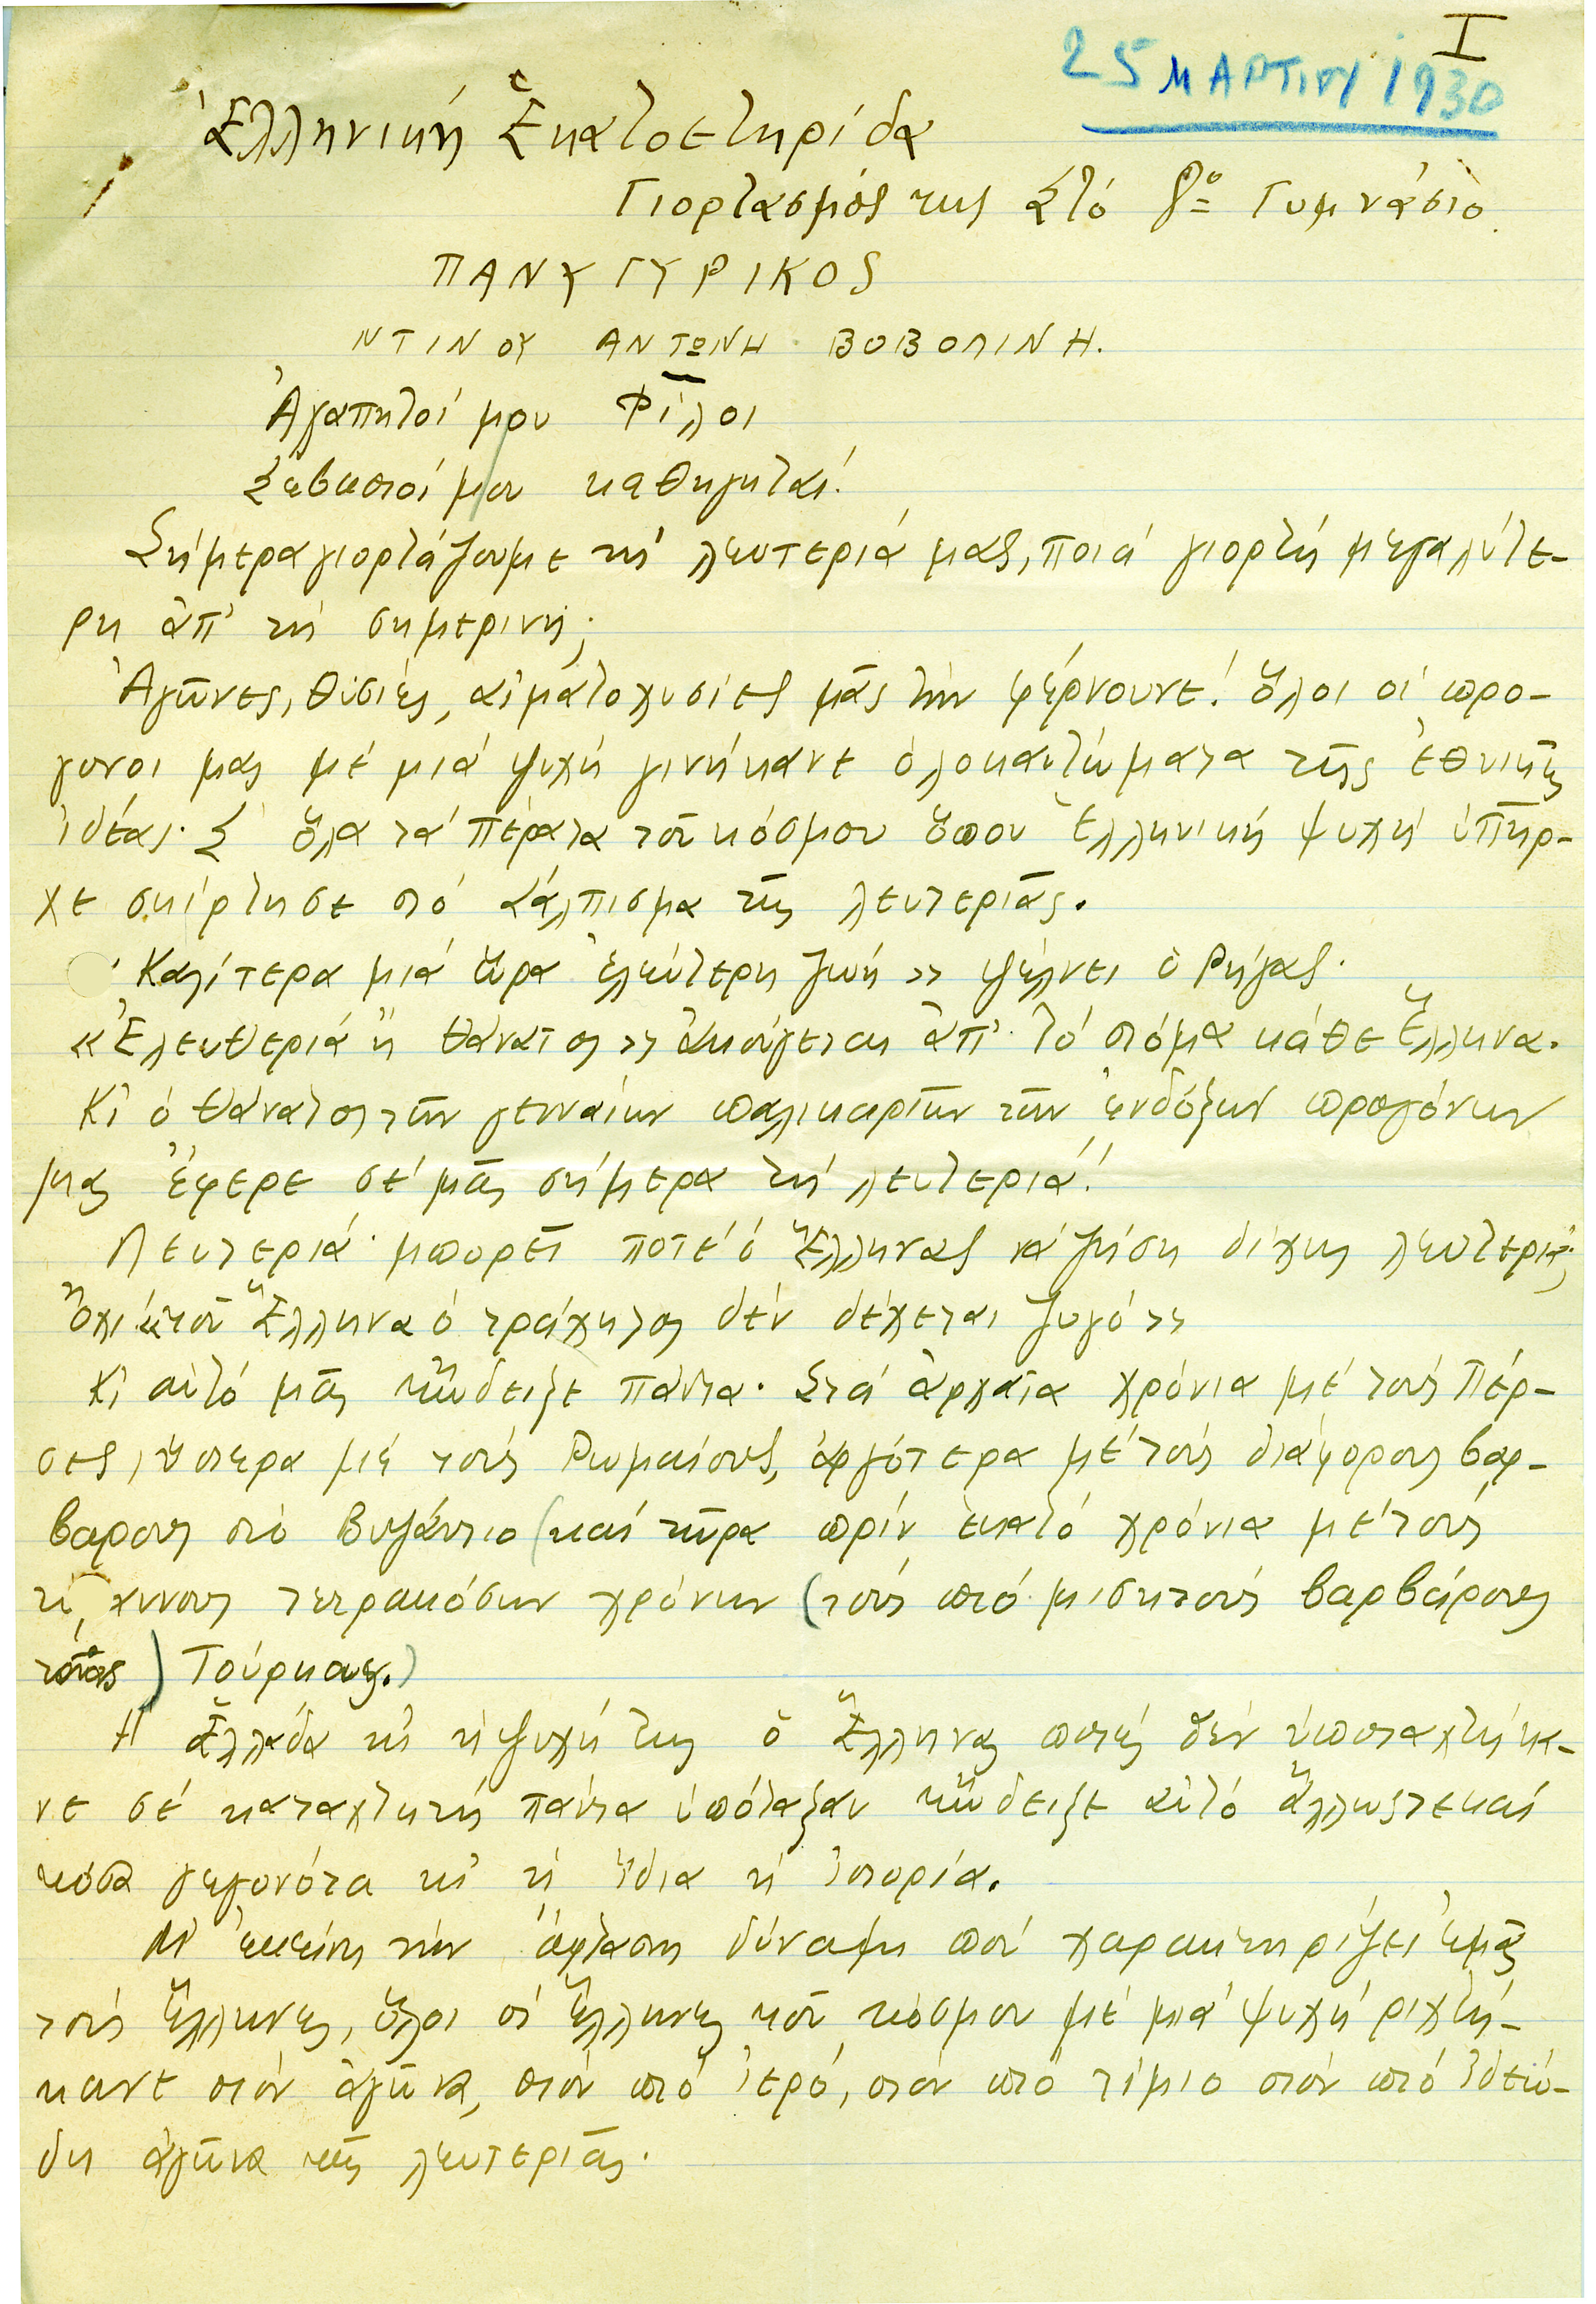 I
25 ΜΑΡΤΙΟΥ 1930
Ἑλληνική Ἑκατοετηρίδα
Γιορτασμός της Στό 8ο Γυμνάσιο.
ΠΑΝΥΓΥΡΙΚΟΣ
ΝΤΙΝΟΥ ΑΝΤΩΝΗ ΒΟΒΟΛΙΝΗ.
Ἀγαπητοί μου Φίλοι
Σεβαστοί μου καθηγηταί!
Σήμερα γιορτάζουμε τή λευτεριά μας, ποιά γιορτή μεγαλύτε-
ρη ἀπ' τή σημερινή;
Ἀγῶνες, θυσίες, αἱματοχυσίες μᾶς τήν φέρνουνε! Ὅλοι οἱ προ-
γονοι μας μέ μιά ψυχή γινήκανε ὁλοκαυτώματα τῆς ἐθνικῆς
ἰδέας. Σ' ὅλα τά πέρατα τοῦ κόσμου ὅπου Ἑλληνική ψυχή ὑπῆρ-
χε σκίρτησε στό σάλπισμα τῆς λευτεριᾶς.
Καλίτερα μιά ὥρα ἐλεύτερη ζωή» ψέλνει ὁ Ρήγας.
«Ἐλευθεριά ἤ θάνατος» ἀκούγεται ἀπ' τό στόμα κάθε Ἕλληνα.
Κι ὁ θάνατος τῶν γενναίων παλικαριῶν τῶν ἐνδόξων προγόνων
μας ἔφερε σέ μᾶς σήμερα τή λευτεριά!
Λευτεριά· μπορεῖ ποτέ ὁ Ἕλληνας νά ζήση δίχως λευτεριά;
Ὄχι «τοῦ Ἕλληνα ὁ τράχηλος δέν δέχεται ζυγό»
Κι αὐτό μᾶς τὤδειξε πάντα. Στά ἀρχαῖα χρόνια μέ τούς Πέρ-
σες, ὕστερα μέ τούς Ρωμαίους, ἀργότερα μέ τούς διάφορους βαρ-
βαρους στό Βυζάντιο (καί τώρα πρίν ἑκατό χρόνια μέ τούς
τυράννους τετρακόσων χρόνων (τούς πιό μισητούς βαρβάρους
) Τούρκους.)
Η Ἑλλάδα κι' ἡ ψυχή της ὁ Ἕλληνας ποτές δέν ὑποταχτήκα-
νε σέ καταχτητή πάντα ὑπόταξαν τὤδειξε αὐτό ἄλλωστε καί
τόσα γεγονότα κι' ἡ ἴδια ἡ ἱστορία.
Μ' ἐκείνη τήν ἄφταστη δύναμη πού χαρακτηρίζει ἐμᾶς
τούς Ἕλληνες, ὅλοι οἱ Ἕλληνες τοῦ κόσμου μέ μιά ψυχή ριχτή-
κανε στόν ἀγῶνα, στόν πιό ἱερό, στόν πιό τίμιο στόν πιό ἰδεώ-
δη ἀγῶνα τῆς λευτεριᾶς.